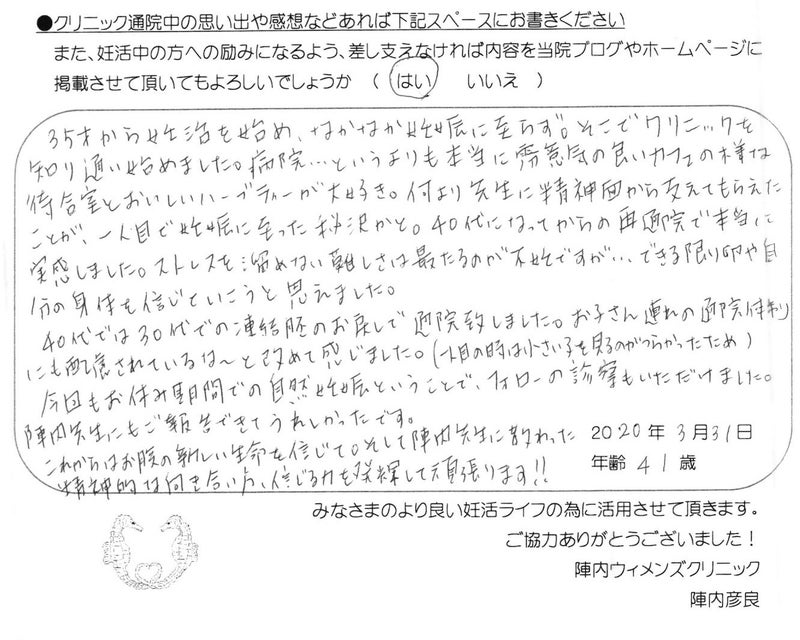 ●クリニック通院中の思い出や感想などあれば下記スペースにお書きください
また、妊活中の方への励みになるよう、差し支えなければ内容を当院ブログやホームページに
掲載させて頂いてもよろしいでしょうか （ はい いいえ ）
35才から妊活を始め、なかなか妊娠に至らず。そこでクリニックを
知り通い始めました。病院…というよりも本当に雰意気の良いカフェの様な
待合室とおいしいハーブティーが大好き。何より先生に精神面から支えてもらえた
ことが、一人目で妊娠に至った秘訣かと。40代になってからの再通院で本当に
実感しました。ストレスを溜めない難しさは最たるのが不妊ですが…できる限り卵や自
分の身体を信じていこうと思えました。
40代では30代での凍結胚のお戻しで通院致しました。お子さん連れの通院体制
にも配慮されているな〜と改めて感じました。(一人目の時は小さい子を見るのがつらかったため)
今回もお休み期間での自然妊娠ということで、フォローの診察もいただけました。
陣内先生にもご報告できてうれしかったです。
これからはお腹の新しい生命を信じて。そして陣内先生に教わった
精神的な向き合い方、信じる力を発揮して頑張ります!!
2020年 3月31日
年齢 41歳
みなさまのより良い妊活ライフの為に活用させて頂きます。
ご協力ありがとうございました！
陣内ウィメンズクリニック
陣内彦良